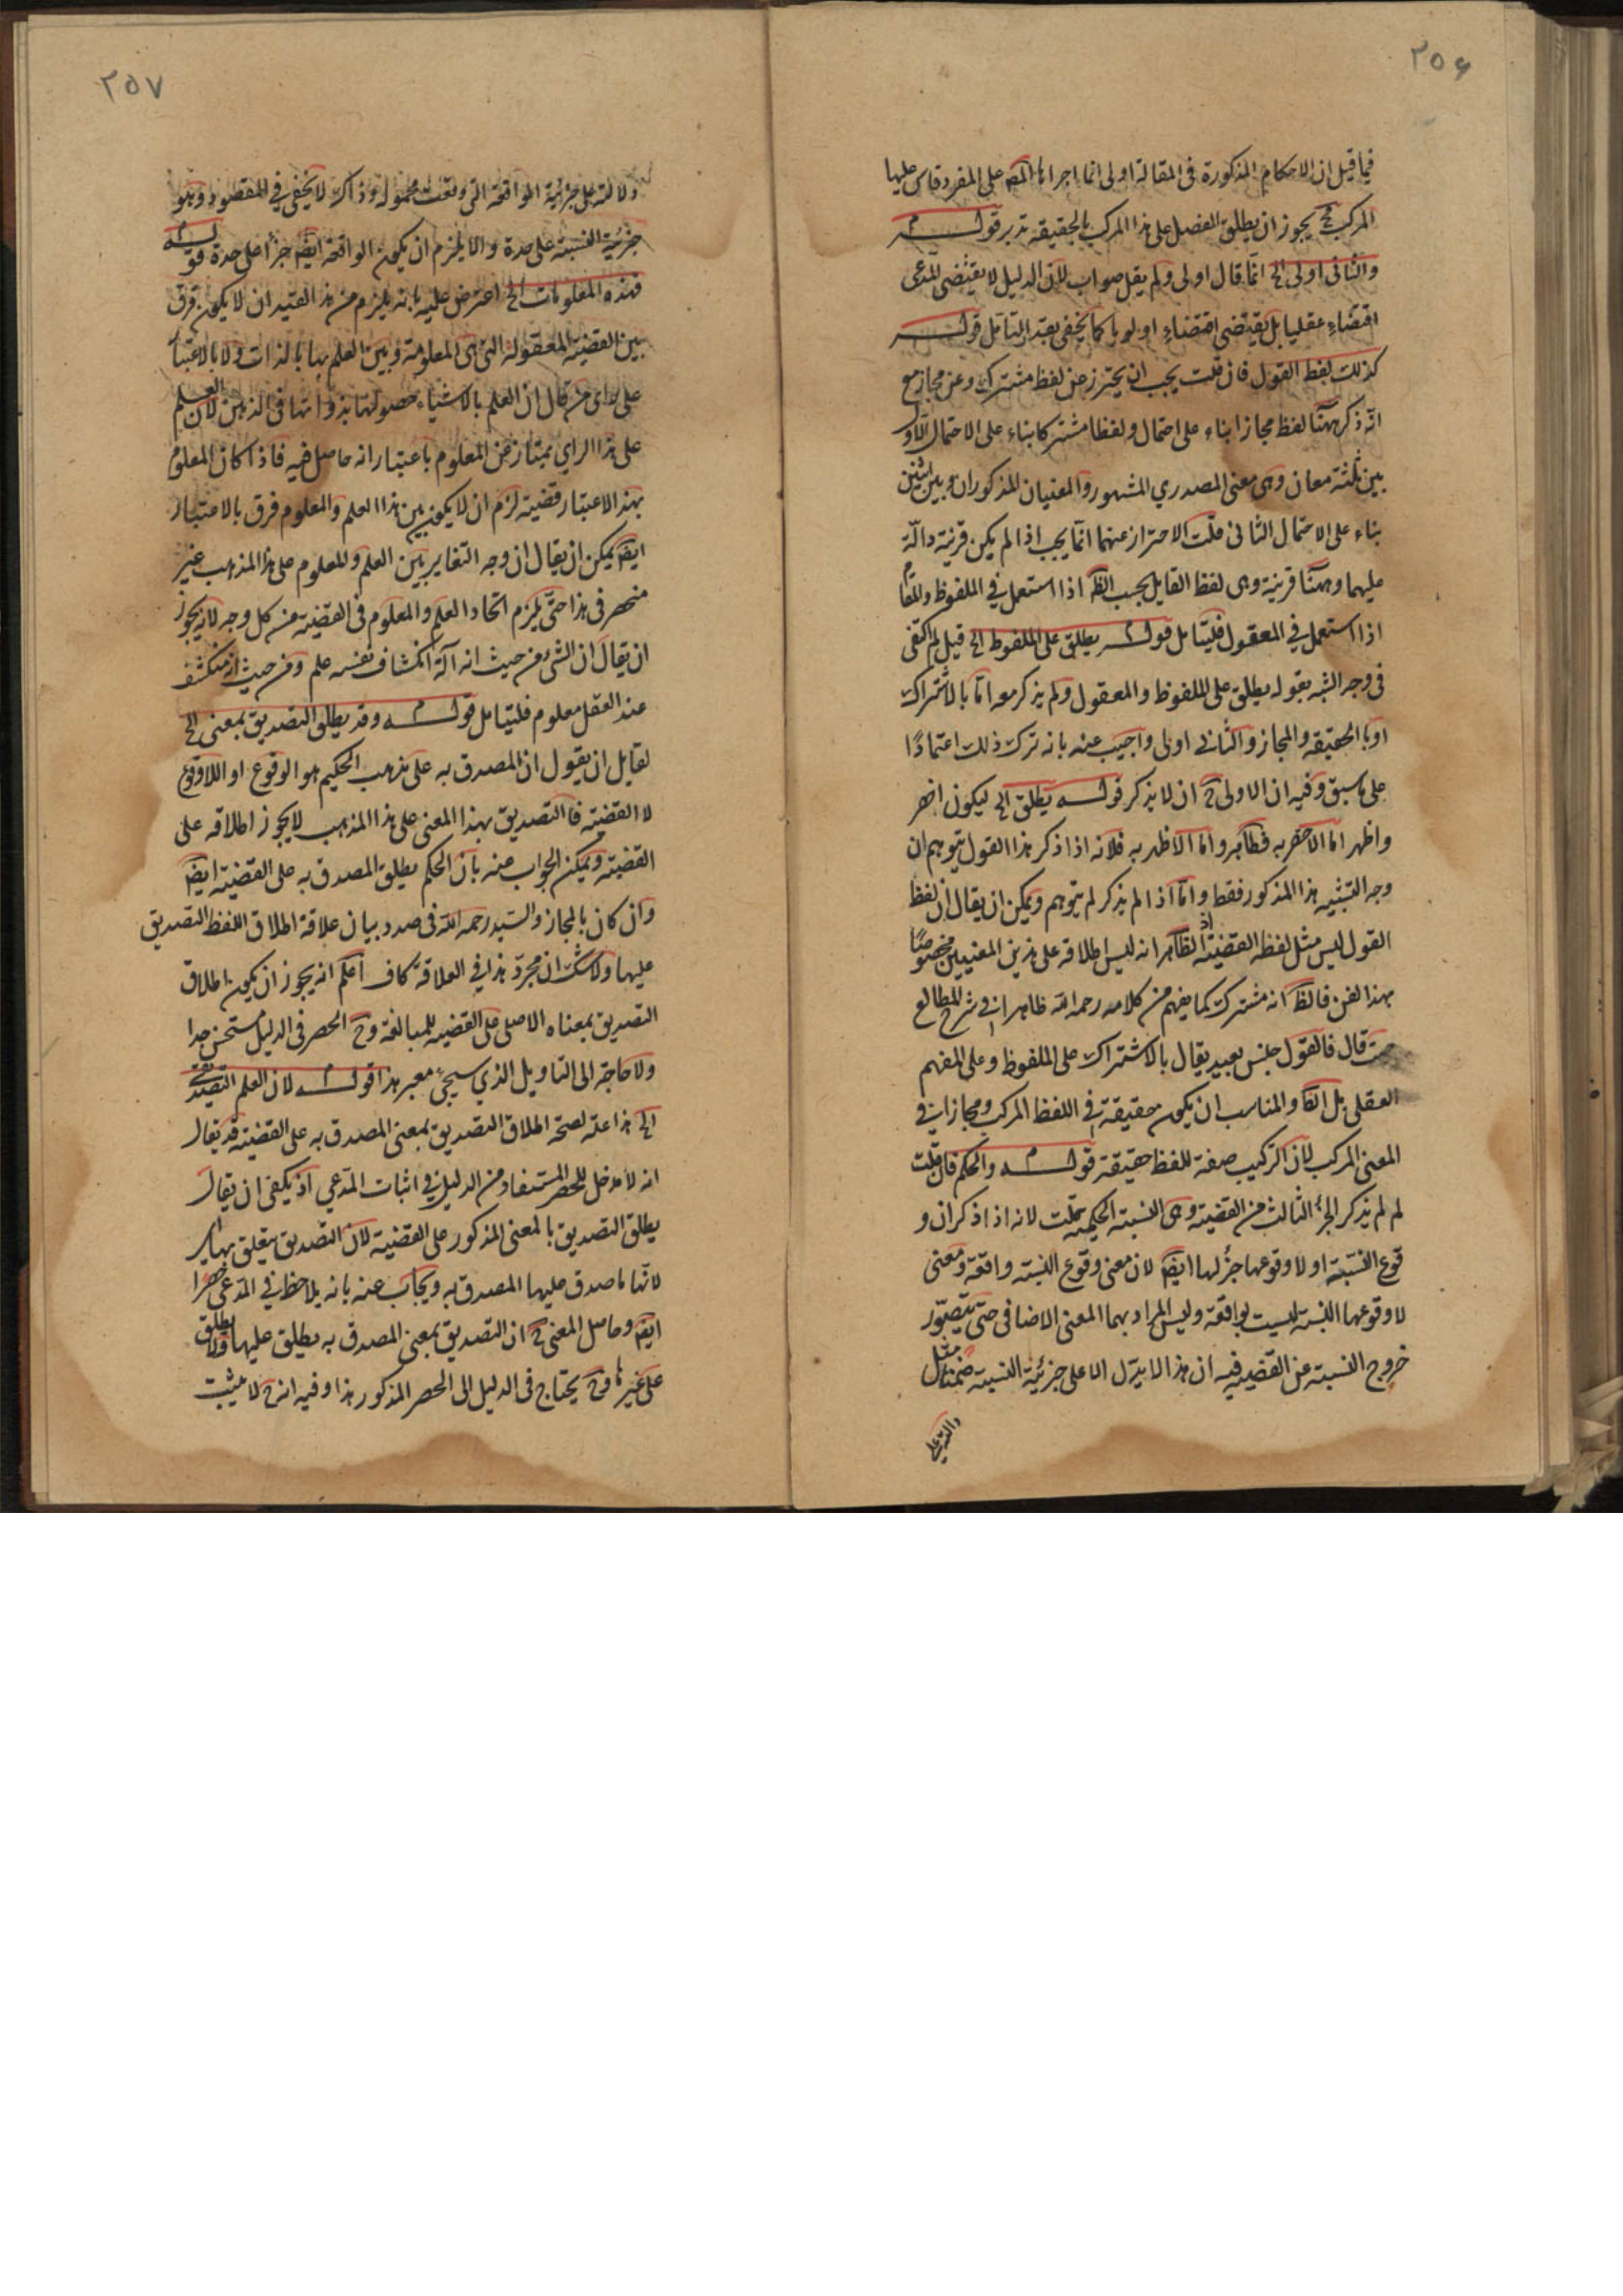 ٢٥٦
فما قيل ان الاحكام المذكورة فى المقالة اولى انما اجراها المص على المفرد قاس عليها
المركب ح يجوز ان يطلق الفصل على هذا المركب بالحقيقة تدبر قولــه
والثانى اولى الخ انما قال اولى ولم يقل صواب لان الدليل لا يقتضى المدعى
اقتضاء عقليا بل يقتضى اقتضاء اولويا كما يخفى بعد التامل قولــه
كذلك لفظ القول فان قلت يجب ان يحترز عن لفظ مشترك وعن مجاز مع
انه ذكر ههنا لفظ مجازا بناء على احتمال ولفظا مشتركا بناء على الاحتمال الاول
بين ثلثة معان وهى معنى المصدري المشهور والمعنيان المذكوران وبين اثنين
بناء على الاحتمال الثانى قلت الاحتراز عنهما انما يجب اذا لم يكن قرينة دالة
عليهما وههنا قرينة وهى لفظ القايل بحسب الظ اذا استعمل في الملفوظ والمقام
اذا استعمل في المعقول فليتامل قولــه يطلق على الملفوظ الخ قيل لم اكتفى
فى وجه الشبه بقوله يطلق على الملفوظ والمعقول ولم يذكر معه اما بالاشتراك
او بالحقيقة والمجاز والثانى اولى واجيب عنه بانه ترك ذلك اعتمادًا
على ما سبق وفيه ان الاولى ح ان لا يذكر قولــه يطلق الخ ليكون اخصر
واظهر اما الاخصرية فظاهر واما الاظهرية فلانه اذا ذكر هذا القول يتوهم ان
وجه التشبيه هذا المذكور فقط واما اذا لم يذكر لم يتوهم ويمكن ان يقال ان لفظ
القول ليس مثل لفظ القضية اذ الظاهر انه ليس اطلاقه على هذين المعنيين مخصوصًا
بهذا الفن فالظ انه مشترك كما يفهم من كلامه رحمه الله ظاهرا فى شرح المطالع
حيث قال فالقول جنس بعيد يقال بالاشتراك على الملفوظ وعلى المفهم
العقلى بل والمناسب ان يكون حقيقة فى اللفظ المركب ومجازا فى
المعنى المركب لان التركيب صفة للفظ حقيقة قولــه والحكم فان قلت
لم لم يذكر الجزء الثالث من القضية وهى النسبة الحكمية قلت لانه اذا ذكر ان و
قوع النسبة او لا وقوعها جزء لها ايض لان معنى وقوع النسبة واقعة ومعنى
لا وقوعها النسبة ليست بواقعة وليس المراد بهما المعنى الاضافى حتى يتصور
خروج النسبة عن القضية فيه ان هذا لا يدل الا على جزئية النسبة ضمنا مثل
دلالته على
٢٥٧
دلالته على جزئية الواقعة التى وقعت محمولة وذاك لا يخفى في المقصود وهو
جزئية النسبة على حدة والا يلزم ان يكون الواقعة ايض جزأ على حدة قولــه
فهذه المعلومات الخ اعترض عليه بانه يلزم من هذا القيد ان لا يكون فرق
بين القضية المعقولة التى هى المعلومة وبين العلم بها بالذات ولا بالاعتبار
على راى من قال ان العلم بالاشياء حصولها بذواتها فى الذهن لان العلم
على هذا الراي ممتاز عن المعلوم باعتبار انه حاصل فيه فاذا كان المعلوم
بهذا الاعتبار قضية لزم ان لا يكون بين هذا العلم والمعلوم فرق بالاعتبار
ايض يمكن ان يقال ان وجه التغاير بين العلم والمعلوم على هذا المذهب غير
منحصر فى هذا حتى يلزم اتحاد العلم والمعلوم فى القضية من كل وجه لانه يجوز
ان يقال ان الشى من حيث انه آلة انكشاف نفسه علم ومن حيث انه منكشف
عند العقل معلوم فليتامل قولــه وقد يطلق التصديق بمعنى الخ
لقايل ان يقول ان المصدق به على مذهب الحكيم هو الوقوع او اللاوقوع
لا القضية فالتصديق بهذا المعنى على هذا المذهب لا يجوز اطلاقه على
القضية ويمكن الجواب عنه بان الحكم يطلق المصدق به على القضية ايض
وان كان بالمجاز والسيد رحمه الله فى صدد بيان علاقة اطلاق اللفظ التصديق
عليها ولا شك ان مجرد هذا في العلاقة كاف اعلم انه يجوز ان يكون اطلاق
التصديق بمعناه الاصلى على القضية للمبالغة وح الحصر فى الدليل مستحسن جدا
ولا حاجة الى التاويل الذي سيجئ معبر هذا قولــه لان العلم التصديقى
الخ هذا علة لصحة اطلاق التصديق بمعنى المصدق به على القضية قد يقال
انه لا مدخل للحصر المستفاد من الدليل فى اثبات المدعي اذ يكفى ان يقال
يطلق التصديق بالمعنى المذكور على القضية لان التصديق يتعلق بها
لانها ما صدق عليها المصدق به ويجاب عنه بانه يلاحظ فى المدعى حصرا
ايض وحاصل المعنى ح ان التصديق بمعنى المصدق به يطلق عليها ولا يطلق
على غيرها وح يحتاج فى الدليل الى الحصر المذكور هذا وفيه انه لا يثبت